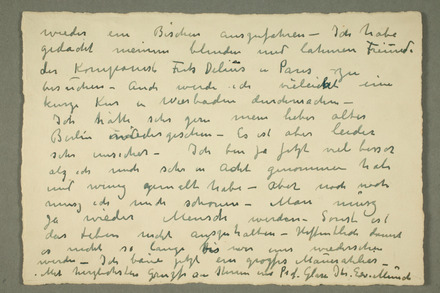 wieder ein Bischen auszufahren – Ich habe
gedacht meinem blinden und lahmen Freund
der Komponist Fritz Delius in Paris zu
besuchen – Auch werde ich vieleicht eine
kurze Kur in Wiesbaden durchmachen –
Ich hätte sehr gern mein liebes altes
Berlin wiedergesehen – Es ist aber leider
sehr unsicher – Ich bin ja jetzt viel besser
als ich mich sehr in Acht genommen habe
und wenig gemalt habe – aber noch
muss ich mich schonen – Man muss
ja wieder Mensch werden – Sonst ist
das Leben nicht auszuhalten – Hoffentlich dauert
es nicht so lange bis wir uns wiedersehen
werde – Ich baue jetzt ein grosses Maleratelier –
Mit herzlichsten Grüssen an und Prof. Glaser Ihr Edv. Munch